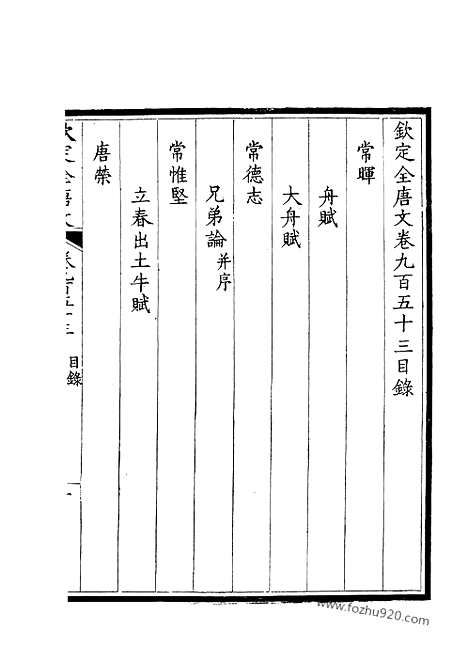 欽定全唐文卷九百五十三目錄
常暉
舟賦
大舟賦
常德志
兄弟論并序
常惟堅
立春出土牛賦
唐榮
目錄
www.fozhu920.com